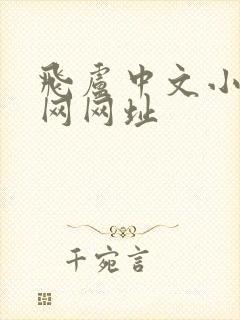 飛盧中文小
网网址
千宛言